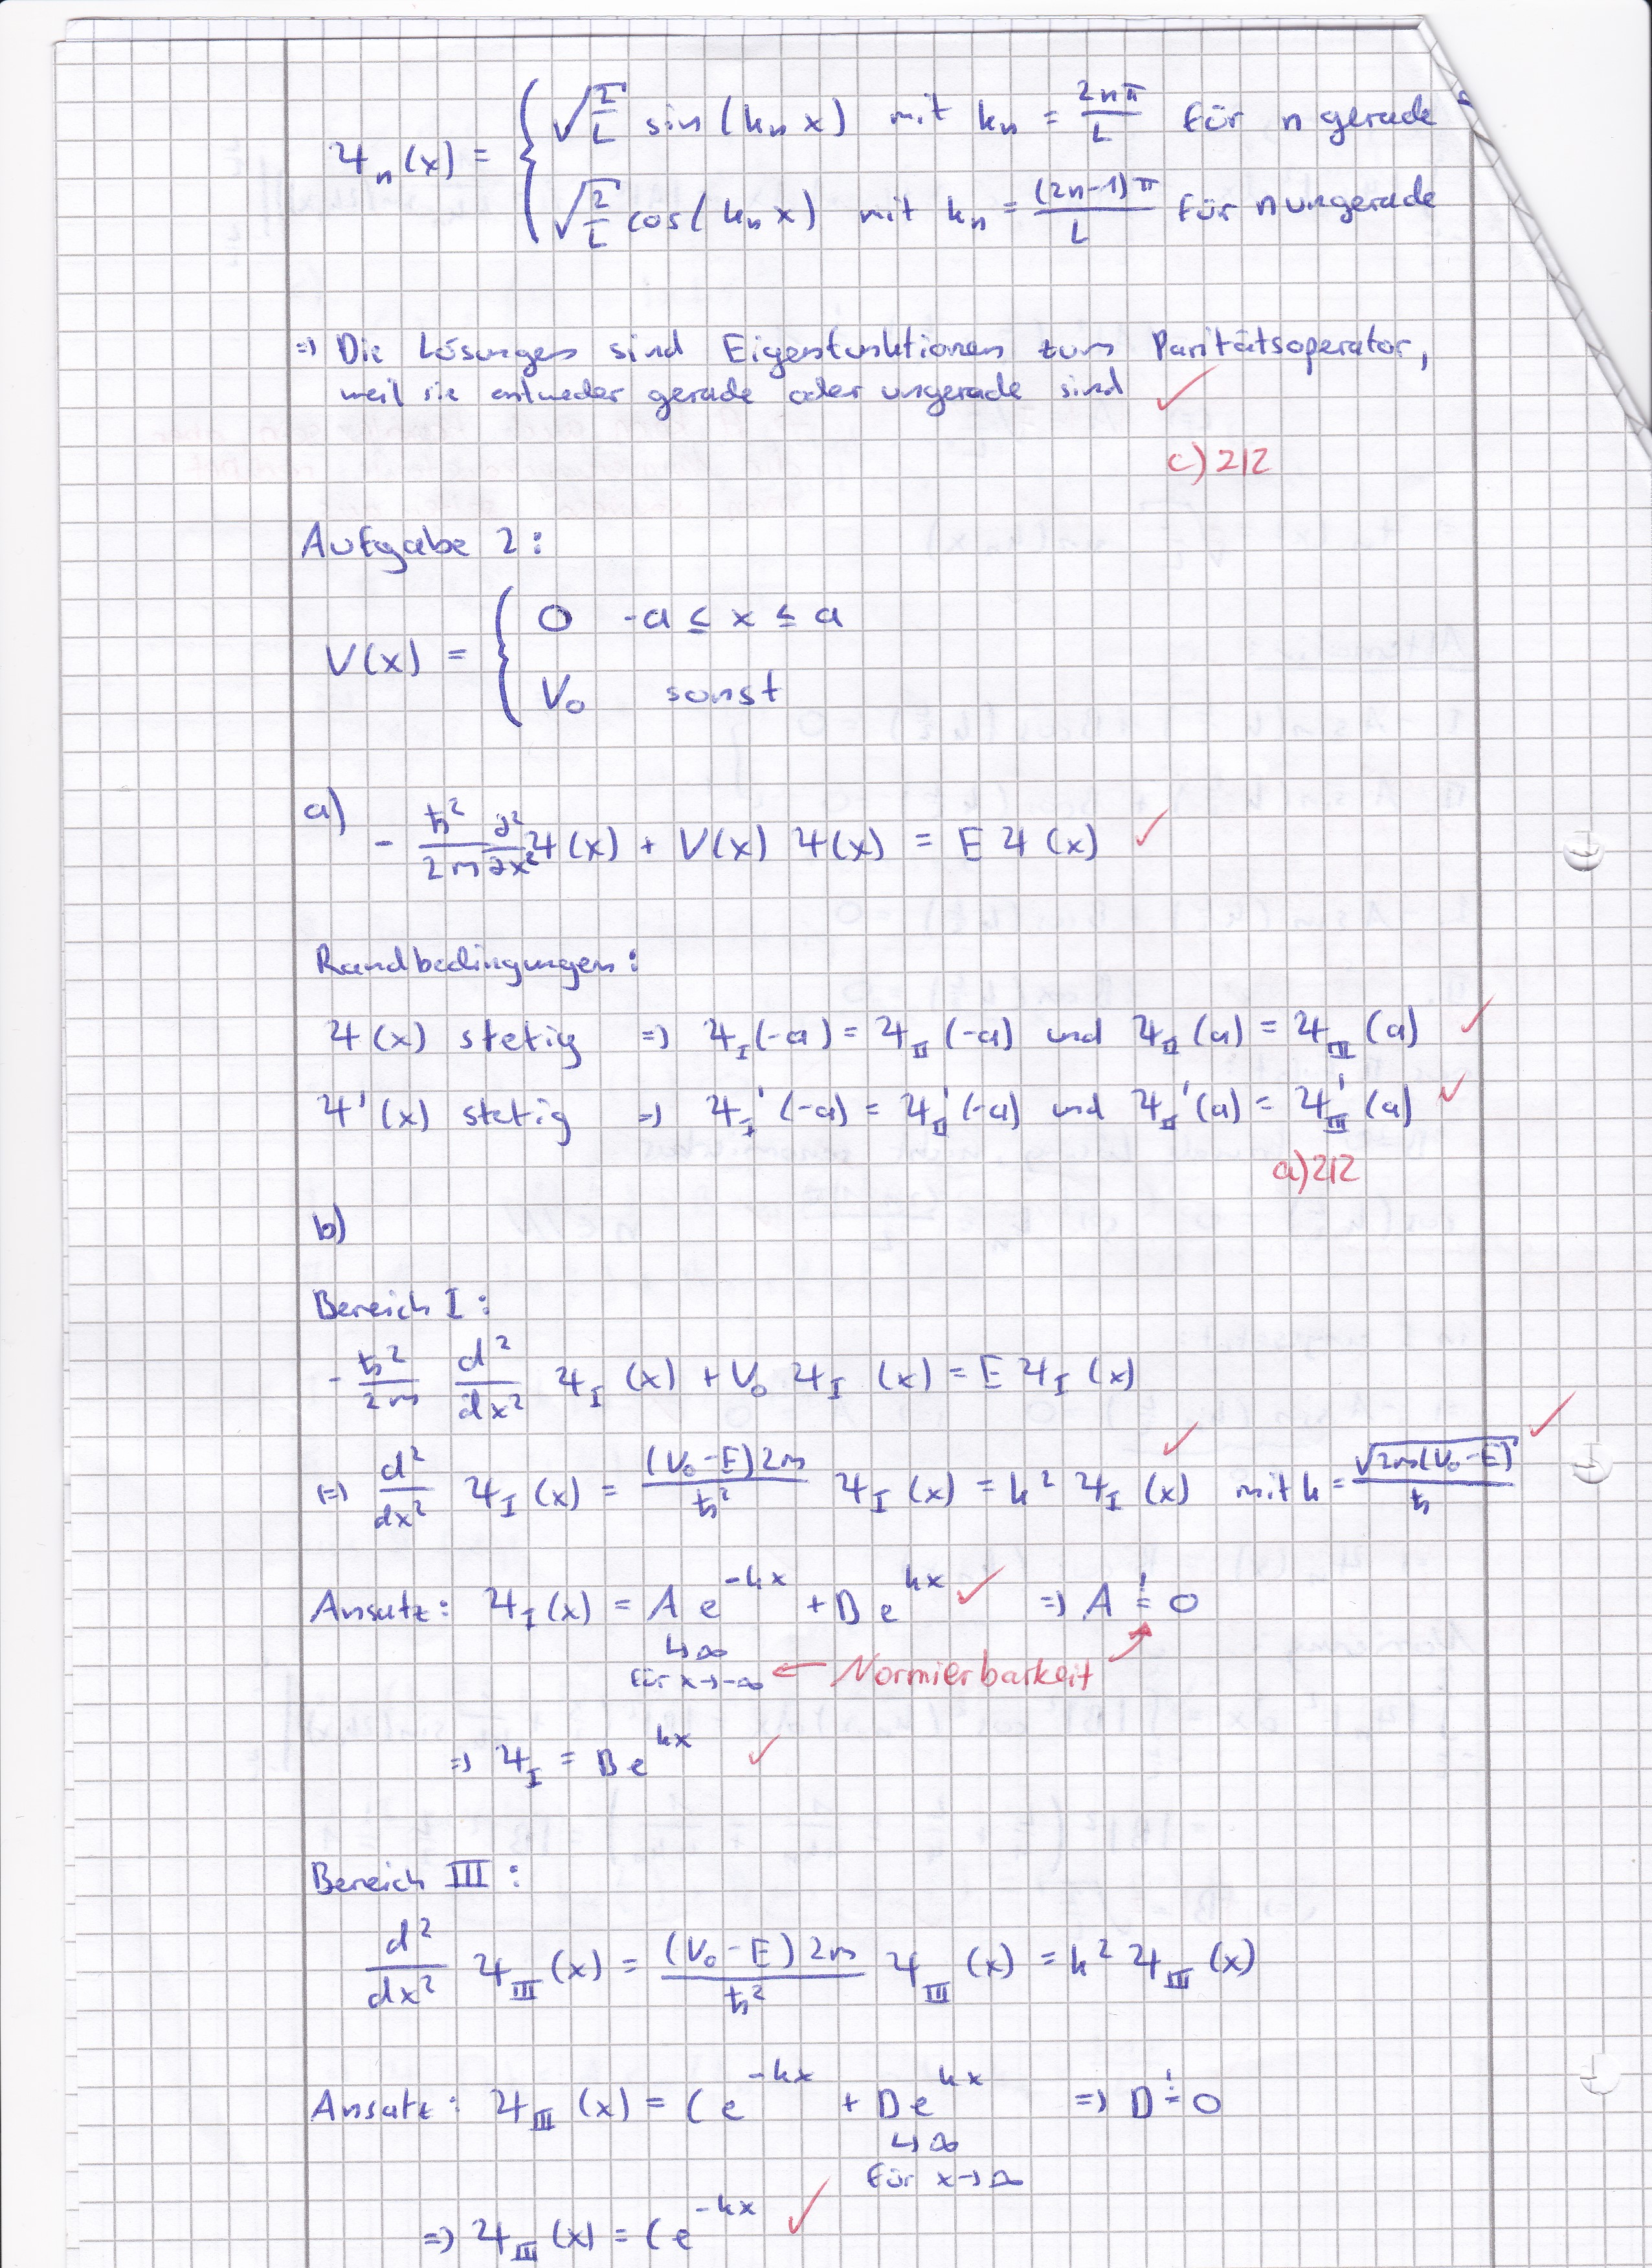 ψₙ(x) = { √(2/L) sin(kₙx) mit kₙ = 2nπ/L für n gerade
√(2/L) cos(kₙx) mit kₙ = (2n-1)π/L für n ungerade
=> Die Lösungen sind Eigenfunktionen zum Paritätsoperator,
weil sie entweder gerade oder ungerade sind ✓
c) 2/2
Aufgabe 2:
V(x) = { 0 -a ≤ x ≤ a
V₀ sonst
a) - ħ²/2m ∂²/∂x² ψ(x) + V(x) ψ(x) = E ψ(x) ✓
Randbedingungen:
ψ(x) stetig => ψ_I(-a) = ψ_II(-a) und ψ_II(a) = ψ_III(a) ✓
ψ'(x) stetig => ψ_I'(-a) = ψ_II'(-a) und ψ_II'(a) = ψ_III'(a) ✓
a) 2/2
b)
Bereich I:
- ħ²/2m d²/dx² ψ_I(x) + V₀ ψ_I(x) = E ψ_I(x)
(=) d²/dx² ψ_I(x) = (V₀-E)2m/ħ² ψ_I(x) = k² ψ_I(x) ✓ mit k = √(2m(V₀-E))/ħ ✓
Ansatz: ψ_I(x) = A e^(-kx) + B e^(kx) ✓ => A != 0
↳ ∞
für x→-∞ ← Normierbarkeit
=> ψ_I = B e^(kx) ✓
Bereich III:
d²/dx² ψ_III(x) = (V₀-E)2m/ħ² ψ_III(x) = k² ψ_III(x)
Ansatz: ψ_III(x) = C e^(-kx) + D e^(kx) => D != 0
↳ ∞
für x→∞
=> ψ_III(x) = C e^(-kx) ✓